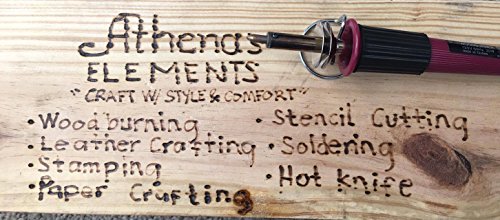 Athenas
ELEMENTS
"CRAFT W/ STYLE & COMFORT"
• Woodburning
• Leather Crafting
• Stamping
• Paper Crafting
• Stencil Cutting
• Soldering
• Hot Knife